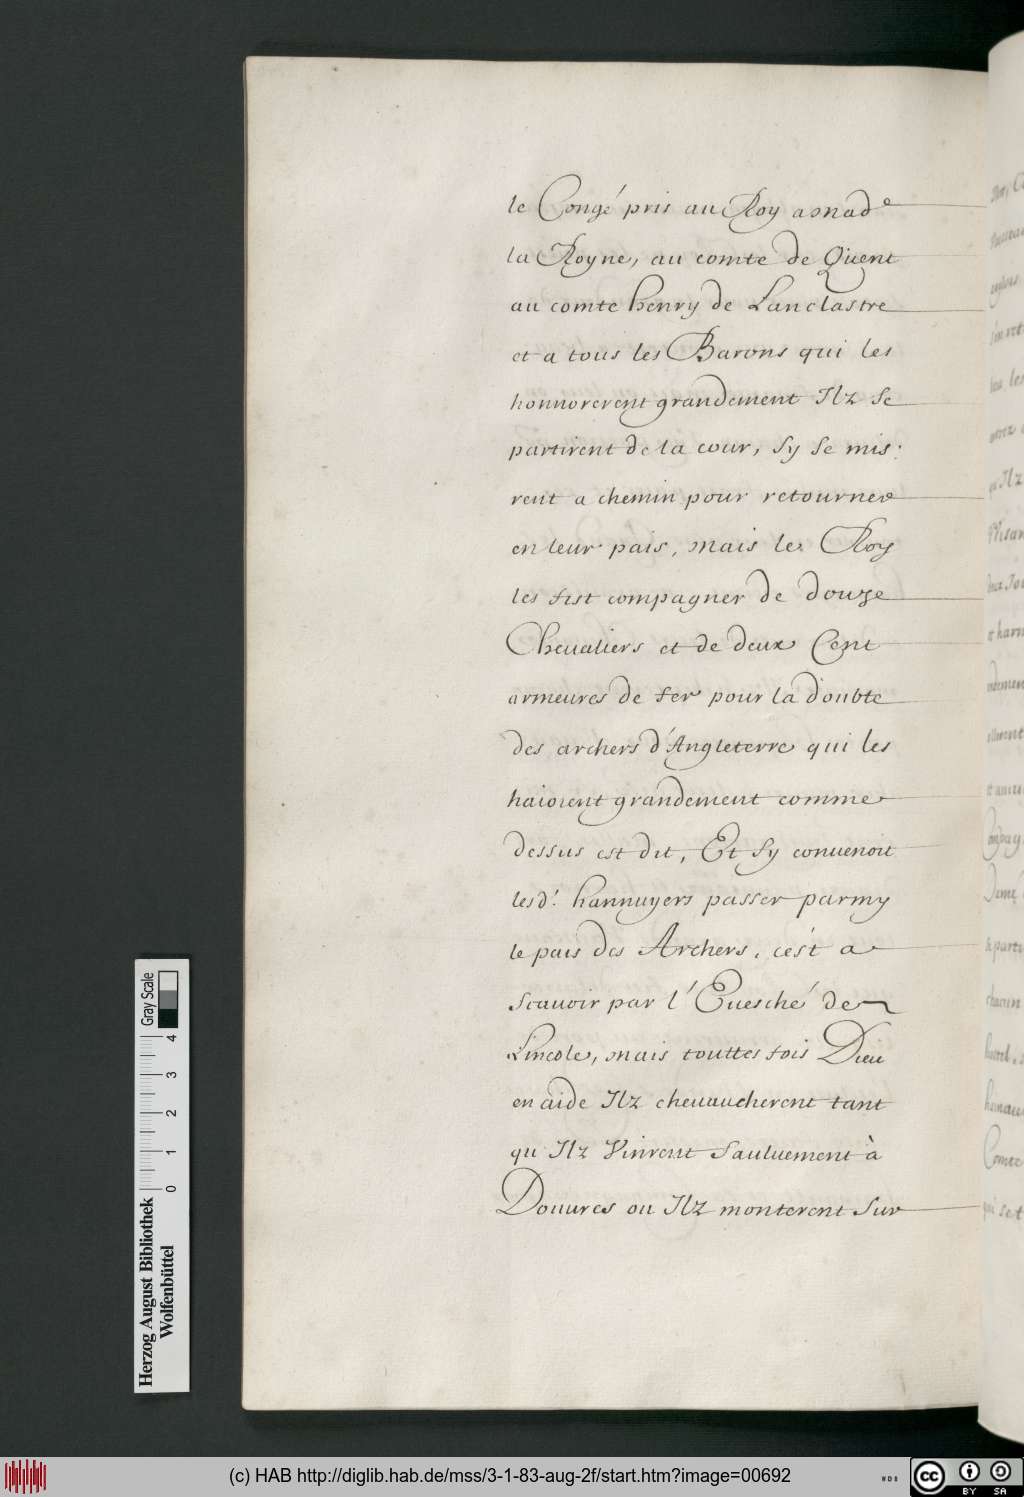 le Congé pris au Roy a mad.e
la Royne, au comte de Quent
au comte henry de Lanclastre
et a tous les Barons qui les
honnorerent grandement Ilz se
partirent de la cour, sy se mis:
rent a chemin pour retourner
en leur pais, mais le Roy
les fist compagner de douze
Chevaliers et de deux Cent
armeures de fer pour la doubte
des archers d'Angleterre qui les
haioient grandement comme
dessus est dit, Et sy convenoit
lesd.' hannuyers passer parmy
le pais des Archers, cest a
scavoir par l'Evesché de
Lincole, mais touttes fois Dieu
en aide Ilz chevaucherent tant
qu Ilz Vinrent sauluement à
Douures ou Ilz monterent sur
Herzog August Bibliothek
Wolfenbüttel
0 1 2 3 4
Gray Scale
(c) HAB http://diglib.hab.de/mss/3-1-83-aug-2f/start.htm?image=00692
WDB
cc BY SA